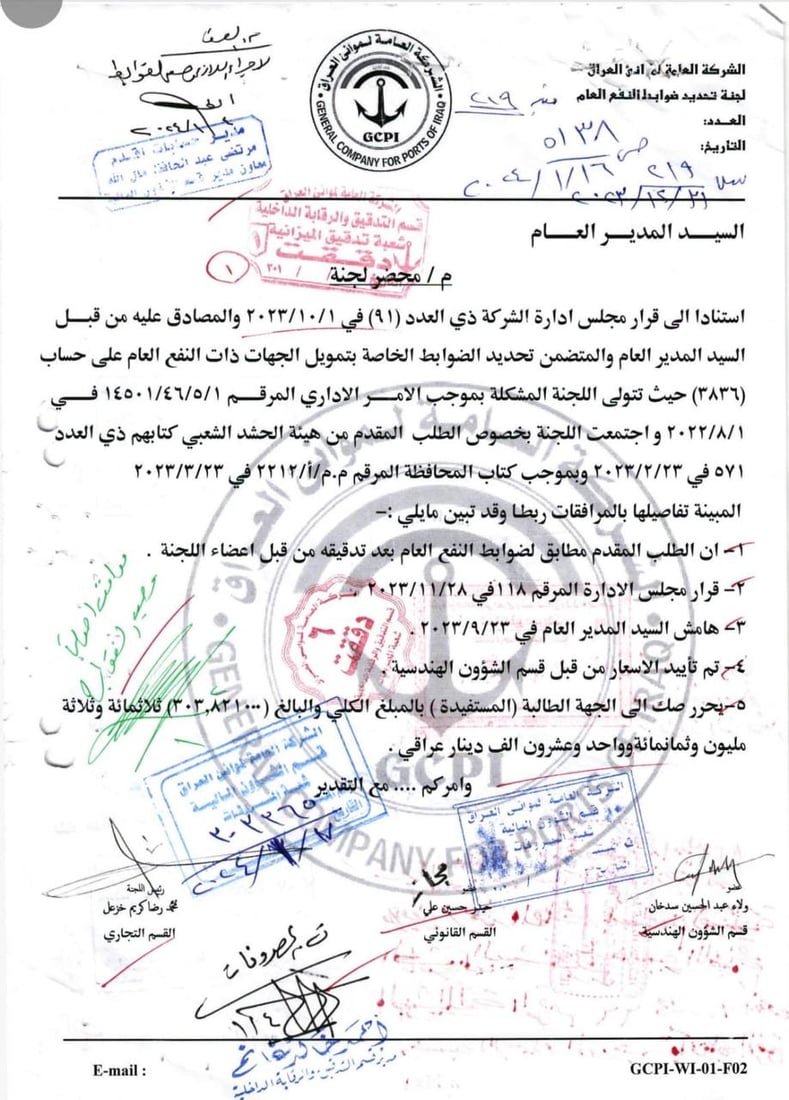 الشركة العامة لموانئ العراق
لجنة تحديد ضوابط النفع العام
العدد:
التاريخ:
٢١٩
٥١٣٨
٢٠٢٤/١/١٦
٢١٩
٢٠٢٣/١٢/٣١
الشركة العامة لموانئ العراق
GENERAL COMPANY FOR PORTS OF IRAQ
GCPI
قسم التدقيق والرقابة الداخلية
شعبة تدقيق الميزانية
دققت
السيد المدير العام
م / محضر لجنة
١
استنادا الى قرار مجلس ادارة الشركة ذي العدد (٩١) في ٢٠٢٣/١٠/١ والمصادق عليه من قبل
السيد المدير العام والمتضمن تحديد الضوابط الخاصة بتمويل الجهات ذات النفع العام على حساب
(٣٨٣٦) حيث تتولى اللجنة المشكلة بموجب الامر الاداري المرقم ١٤٥٠١/٤٦/٥/١ في
٢٠٢٢/٨/١ و اجتمعت اللجنة بخصوص الطلب المقدم من هيئة الحشد الشعبي كتابهم ذي العدد
٥٧١ في ٢٠٢٣/٢/٢٣ وبموجب كتاب المحافظة المرقم م.م/أ/٢٢١٢ في ٢٠٢٣/٣/٢٣
المبينة تفاصيلها بالمرافقات ربطا وقد تبين مايلي :-
١- ان الطلب المقدم مطابق لضوابط النفع العام بعد تدقيقه من قبل اعضاء اللجنة .
٢- قرار مجلس الادارة المرقم ١١٨في ٢٠٢٣/١١/٢٨ .
٣- هامش السيد المدير العام في ٢٠٢٣/٩/٢٣ .
٤- تم تأييد الاسعار من قبل قسم الشؤون الهندسية .
٥- يحرر صك الى الجهة الطالبة (المستفيدة ) بالمبلغ الكلي والبالغ (٣٠٣,٨٢١٠٠٠) ثلاثمائة وثلاثة
مليون وثمانمائةوواحد وعشرون الف دينار عراقي .
وامركم .... مع التقدير
دققت
٦
الشركة العامة لموانئ العراق
الشركة العامة لموانئ العراق
عضو
ولاء عبد الحسين سدخان
قسم الشؤون الهندسية
عضو
حيدر حسين علي
القسم القانوني
رئيس اللجنة
محمد رضا كريم خزعل
القسم التجاري
GENERAL COMPANY FOR PORTS OF IRAQ
GCPI
E-mail :
GCPI-WI-01-F02